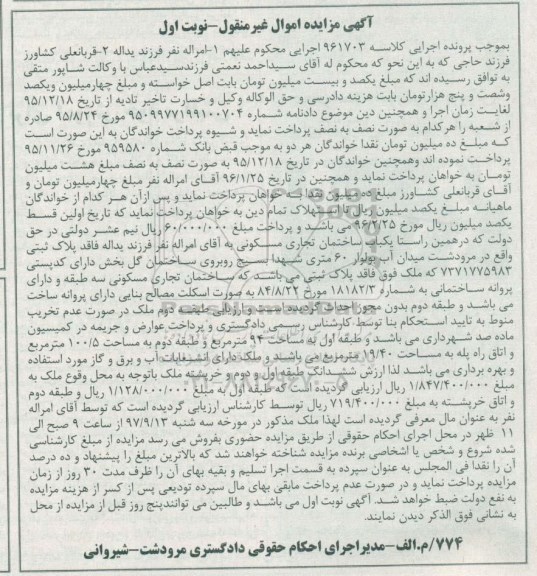 آگهی مزایده اموال غیرمنقول-نوبت اول
بموجب پرونده اجرایی کلاسه ۹۶۱۷۰۳ اجرایی محکوم علیهم ۱-امراله نفر فرزند یداله ۲-قربانعلی کشاورز
فرزند حاجی که به این نحو که محکوم له آقای سیداحمد نعمتی فرزندسیدعباس با وکالت شاپور متقی
به توافق رسیده اند که مبلغ یکصد و بیست میلیون تومان بابت اصل خواسته و مبلغ چهارمیلیون ویکصد
وشصت و پنج هزارتومان بابت هزینه دادرسی و حق الوکاله وکیل و خسارت تاخیر تادیه از تاریخ ۹۵/۱۲/۱۸
لغایت زمان اجرا و همچنین دین موضوع دادنامه شماره ۹۵۰۹۹۷۷۱۹۹۱۰۰۷۰۴ مورخ ۹۵/۸/۲۴ صادره
از شعبه را هرکدام به صورت نصف به نصف پرداخت نماید و شیوه پرداخت خواندگان به این صورت است
که مبلغ ده میلیون تومان نقدا خواندگان هر دو به موجب قبض بانک شماره ۹۵۹۵۸۰ مورخ ۹۵/۱۱/۲۶
پرداخت نموده اند وهمچنین خواندگان در تاریخ ۹۵/۱۲/۱۸ به صورت نصف به نصف مبلغ هشت میلیون
تومان به خواهان پرداخت نماید و همچنین در تاریخ ۹۶/۱/۲۵ آقای امراله نفر مبلغ چهارمیلیون تومان و
آقای قربانعلی کشاورز مبلغ ده میلیون نقدا به خواهان پرداخت نماید و پس ازآن هر کدام از خواندگان
ماهیانه مبلغ یکصد میلیون ریال تا استهلاک تمام دین به خواهان پرداخت نماید که تاریخ اولین قسط
یکصد میلیون ریال مورخ ۹۶/۲/۲۵ می باشد و پرداخت مبلغ ۶۰/۰۰۰/۰۰۰ ریال نیم عشر دولتی در حق
دولت که درهمین راستا یکباب ساختمان تجاری مسکونی به آقای امراله نفر فرزند یداله فاقد پلاک ثبتی
واقع در مرودشت میدان آب بولوار ۶۰ متری شهدا بسیج روبروی ساختمان گل بخش دارای کدپستی
۷۳۷۱۷۷۵۹۸۳ که ملک فوق فاقد پلاک ثبتی می باشد که ساختمان تجاری مسکونی سه طبقه و دارای
پروانه ساختمانی به شماره ۱۸۱۸۲/۳ مورخ ۸۴/۸/۲۲ به صورت اسکلت مصالح بنایی دارای پروانه ساخت
می باشد و طبقه دوم بدون مجوز احداث گردیده است و ارزیابی طبقه دوم ملک در صورت عدم تخریب
منوط به تایید استحکام بنا توسط کارشناس رسمی دادگستری و پرداخت عوارض و جریمه در کمیسیون
ماده صد شهرداری می باشد و طبقه اول به مساحت ۹۴ مترمربع و طبقه دوم به مساحت ۱۰۰/۵ مترمربع
و اتاق راه پله به مساحت ۱۹/۴۰ مترمربع می باشد و ملک دارای انشعابات آب و برق و گاز مورد استفاده
و بهره برداری می باشد لذا ارزش ششدانگ طبقه اول و دوم و خرپشته ملک باتوجه به محل وقوع ملک به
مبلغ ۱/۸۴۷/۴۰۰/۰۰۰ ریال ارزیابی گردیده است که طبقه اول به مبلغ ۱/۱۲۸/۰۰۰/۰۰۰ ریال و طبقه دوم
و اتاق خرپشته به مبلغ ۷۱۹/۴۰۰/۰۰۰ ریال توسط کارشناس ارزیابی گردیده است که توسط آقای امراله
نفر به عنوان مال معرفی گردیده است لهذا ملک مذکور در مورخه سه شنبه ۹۷/۹/۱۳ از ساعت ۹ صبح الی
۱۱ ظهر در محل اجرای احکام حقوقی از طریق مزایده حضوری بفروش می رسد مزایده از مبلغ کارشناسی
شده شروع و شخص یا اشخاصی برنده مزایده شناخته خواهند شد که بالاترین مبلغ را پیشنهاد و ده درصد
آن را نقدا فی المجلس به عنوان سپرده به قسمت اجرا تسلیم و بقیه بهای آن را ظرف مدت ۳۰ روز از زمان
مزایده پرداخت نماید و در صورت عدم پرداخت مابقی بهای مال سپرده تودیعی پس از کسر از هزینه مزایده
به نفع دولت ضبط خواهد شد. آگهی نوبت اول می باشد و طالبین می توانندپنج روز قبل از مزایده از محل
به نشانی فوق الذکر دیدن نمایند.
۷۷۴/م.الف-مدیراجرای احکام حقوقی دادگستری مرودشت-شیروانی